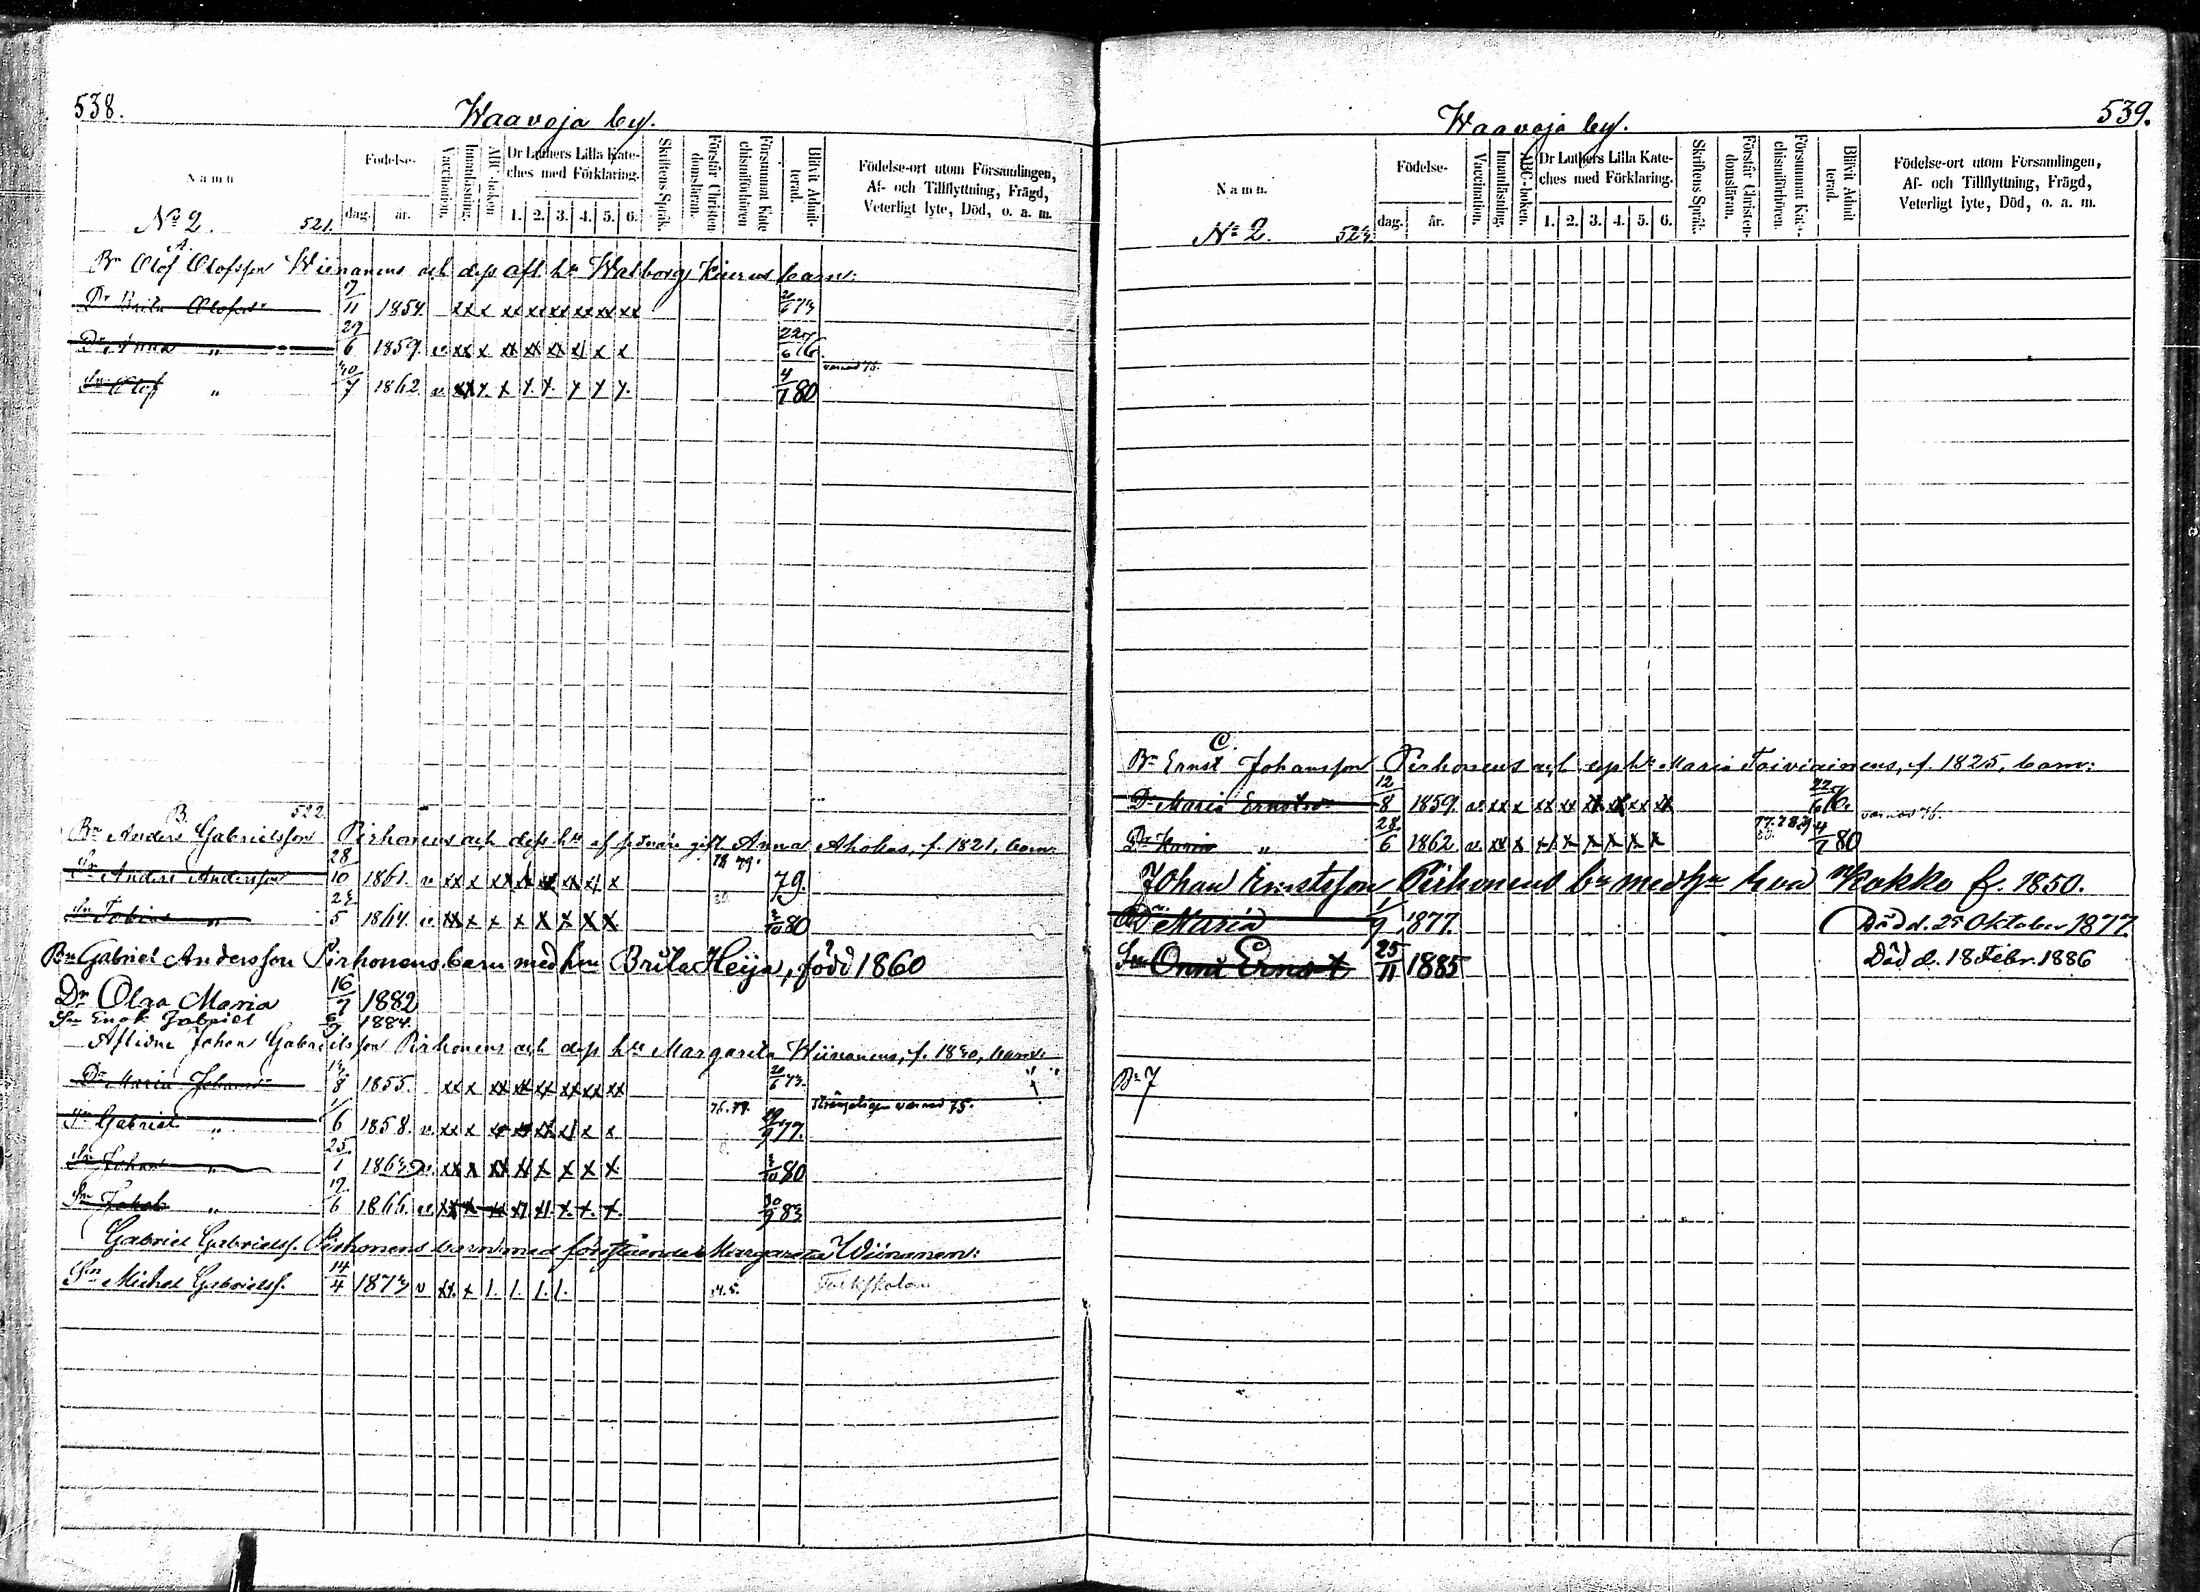 538.
Waavoja by.
Namn
Födelse-
dag.
år.
Vaccination.
Innanläsning.
ABC-boken
Dr Luthers Lilla Kate-
ches med Förklaring.
1. 2. 3. 4. 5. 6.
Skriftens Språk.
Förstår Christen
domsläran.
Försummat Kate
chismiförhören
Blifvit Admit-
terad.
Födelse-ort utom Församlingen,
Af- och Tillflyttning, Frägd,
Veterligt lyte, Död, o. a. m.
No 2. 521.
A.
Bn Olof Olofsson Wiinanens och dess afl. hu Walborg Kiurus barn:
Dr Brita Olofsdr 17/11 1854 xx x xx xx xx xx xx xx 20/6 73
Dr Anna " 29/6 1859. v. xx x 22/6 76. varnad 75.
Sn Olof " 30/7 1862 v. 4/7 80
B. 522.
Bn Anders Gabrielsson Pirhonens och dess hu af förra gift Anna Ahokas, f. 1821, barn:
Sn Anders Andersson 28/10 1861. v. xx x 78 79. 79.
Sn Tobias " 23/5 1864. v. xx x x x x x x x 3/10 80
Bn Gabriel Andersson Pirhonens barn med hu Brita Heija, född 1860
Dr Olga Maria 16/7 1882
Sn Enok Gabriel 1884.
Aflidne Johan Gabrielsson Pirhonens och dess hu Margareta Wiinanens, f. 1830, barn:
Dr Maria Johansdr 13/8 1855. xx x xx xx xx xx xx xx 20/6 73.
Sn Gabriel " 1/6 1858. v. xx x 76. 77. 77. varnad 75.
Sn Johan " 25/1 1863. v. xx x 3/10 80
Sn Jakob " 17/6 1866. v. 30/9 83
Gabriel Gabrielss. Pirhonens barn med förestående Margareta Wiinanen:
Sn Michel Gabrielss. 14/4 1873 v xx. x 1. 1. 1. 1. Folkskolan
539.
Waavoja by.
Namn.
Födelse-
dag.
år.
Vaccination.
Innanläsning.
ABC-boken.
Dr Luthers Lilla Kate-
ches med Förklaring.
1. 2. 3. 4. 5. 6.
Skriftens Språk.
Förstår Christen-
domsläran.
Försummat Kate-
chismiförhören.
Blifvit Admit-
terad.
Födelse-ort utom Församlingen,
Af- och Tillflyttning, Frägd,
Veterligt lyte, Död, o. a. m.
No 2. 523.
C.
Bn Ernst Johansson Pirhonens och hu Maria Toiviainens, f. 1825, barn:
Dr Maria Ernstsdr 12/8 1859. v. xx x xx xx xx xx xx xx 22/6 76. varnad 76.
Dr Karin " 28/6 1862 v. xx x 77. 78. 79 80. 4/7 80
Johan Ernstsson Pirhonens bn med hu Eva Kokko f. 1850.
Dr Maria 1/9 1877. Död d. 25 Oktober 1877.
Sn Onni Ernst 25/11 1885 Död d. 18 Febr. 1886
Bn 7